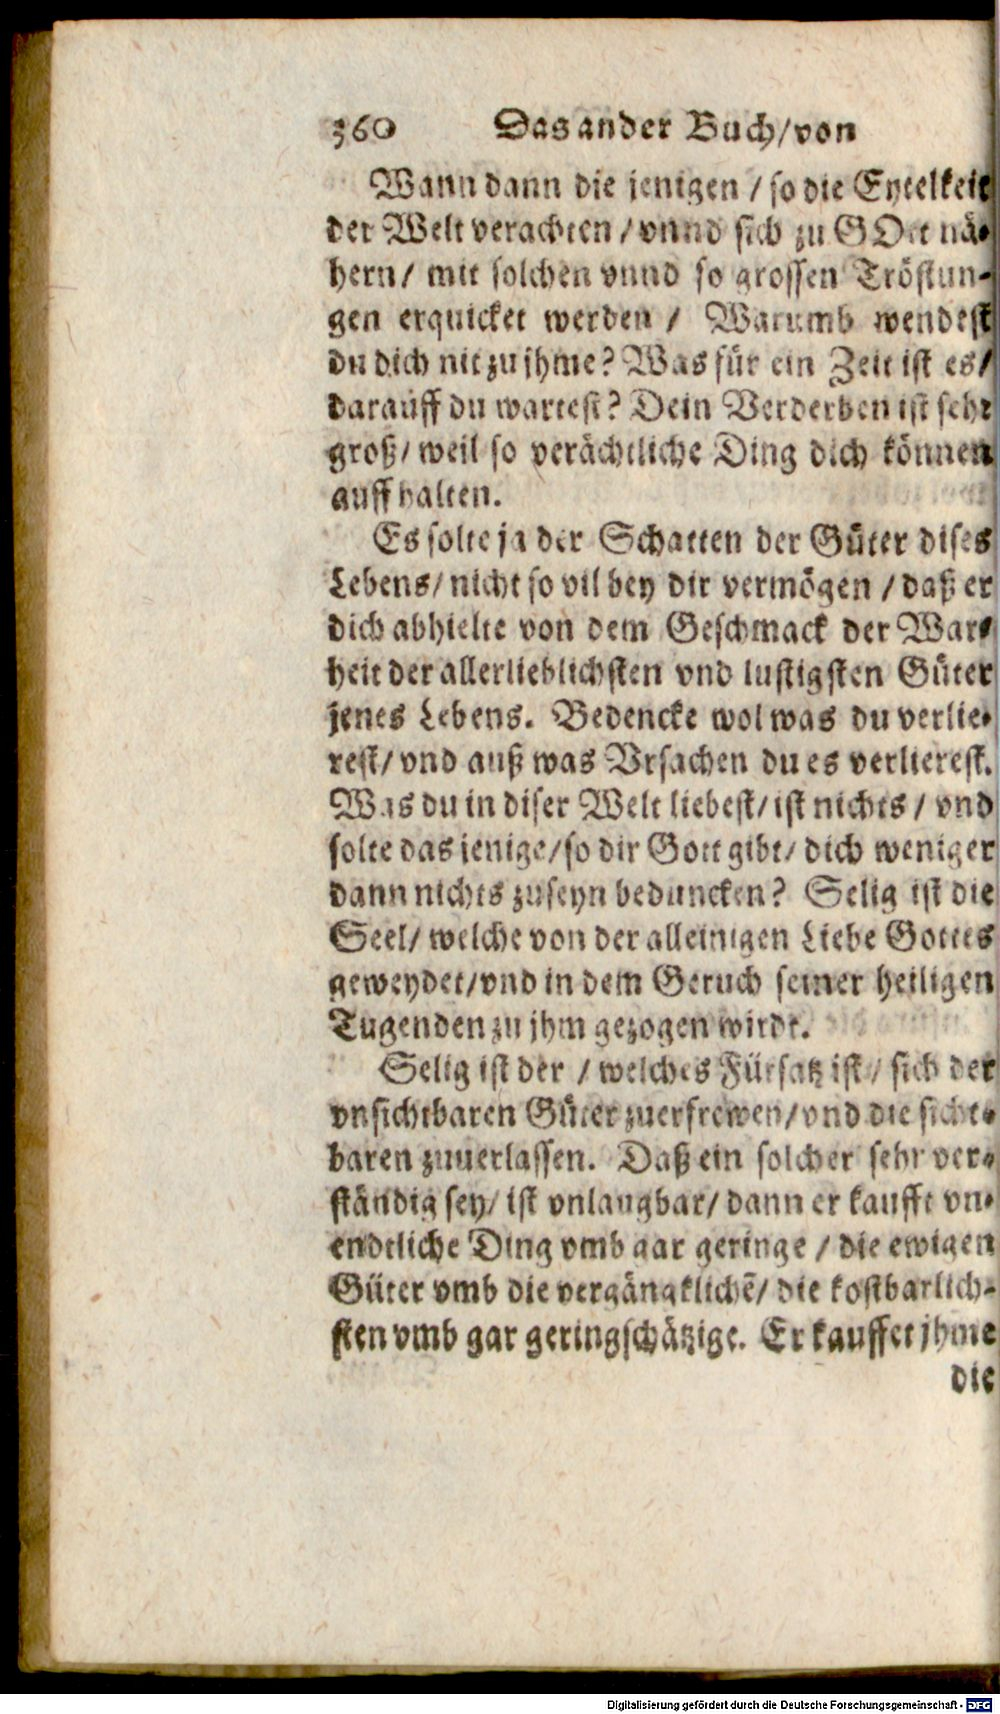 360 Das ander Buch/von
Wann dann die jenigen / so die Eytelkeit
der Welt verachten / vnnd sich zu GOtt nä-
hern/ mit solchen vnnd so grossen Tröstun-
gen erquicket werden / Warumb wendest
du dich nit zu jhme? Was für ein Zeit ist es/
darauff du wartest? Dein Verderben ist sehr
groß/ weil so verächtliche Ding dich können
auffhalten.
Es solte ja der Schatten der Güter dises
Lebens/ nicht so vil bey dir vermögen / daß er
dich abhielte von dem Geschmack der War-
heit der allerlieblichsten vnd lustigsten Güter
jenes Lebens. Bedencke wol was du verlie-
rest/ vnd auß was Vrsachen du es verlierest.
Was du in diser Welt liebest/ ist nichts / vnd
solte das jenige/ so dir Gott gibt/ dich weniger
dann nichts zuseyn beduncken? Selig ist die
Seel/ welche von der alleinigen Liebe Gottes
geweydet/ vnd in dem Geruch seiner heiligen
Tugenden zu jhm gezogen wirdt.
Selig ist der / welches Fürsatz ist / sich der
vnsichtbaren Güter zuerfrewen/ vnd die sicht-
baren zuuerlassen. Daß ein solcher sehr ver-
ständig sey/ ist vnlaugbar/ dann er kaufft vn-
endtliche Ding vmb gar geringe / die ewigen
Güter vmb die vergängklichẽ/ die kostbarlich-
sten vmb gar geringschätzige. Er kauffet jhme
die
Digitalisierung gefördert durch die Deutsche Forschungsgemeinschaft - DFG